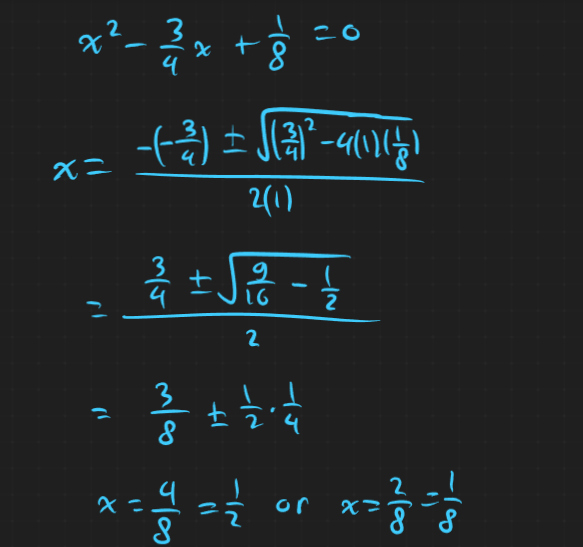 x² - 3/4 x + 1/8 = 0
x = (-(-3/4) ± √((3/4)² - 4(1)(1/8))) / 2(1)
= (3/4 ± √(9/16 - 1/2)) / 2
= 3/8 ± 1/2 · 1/4
x = 4/8 = 1/2 or x = 2/8 = 1/8